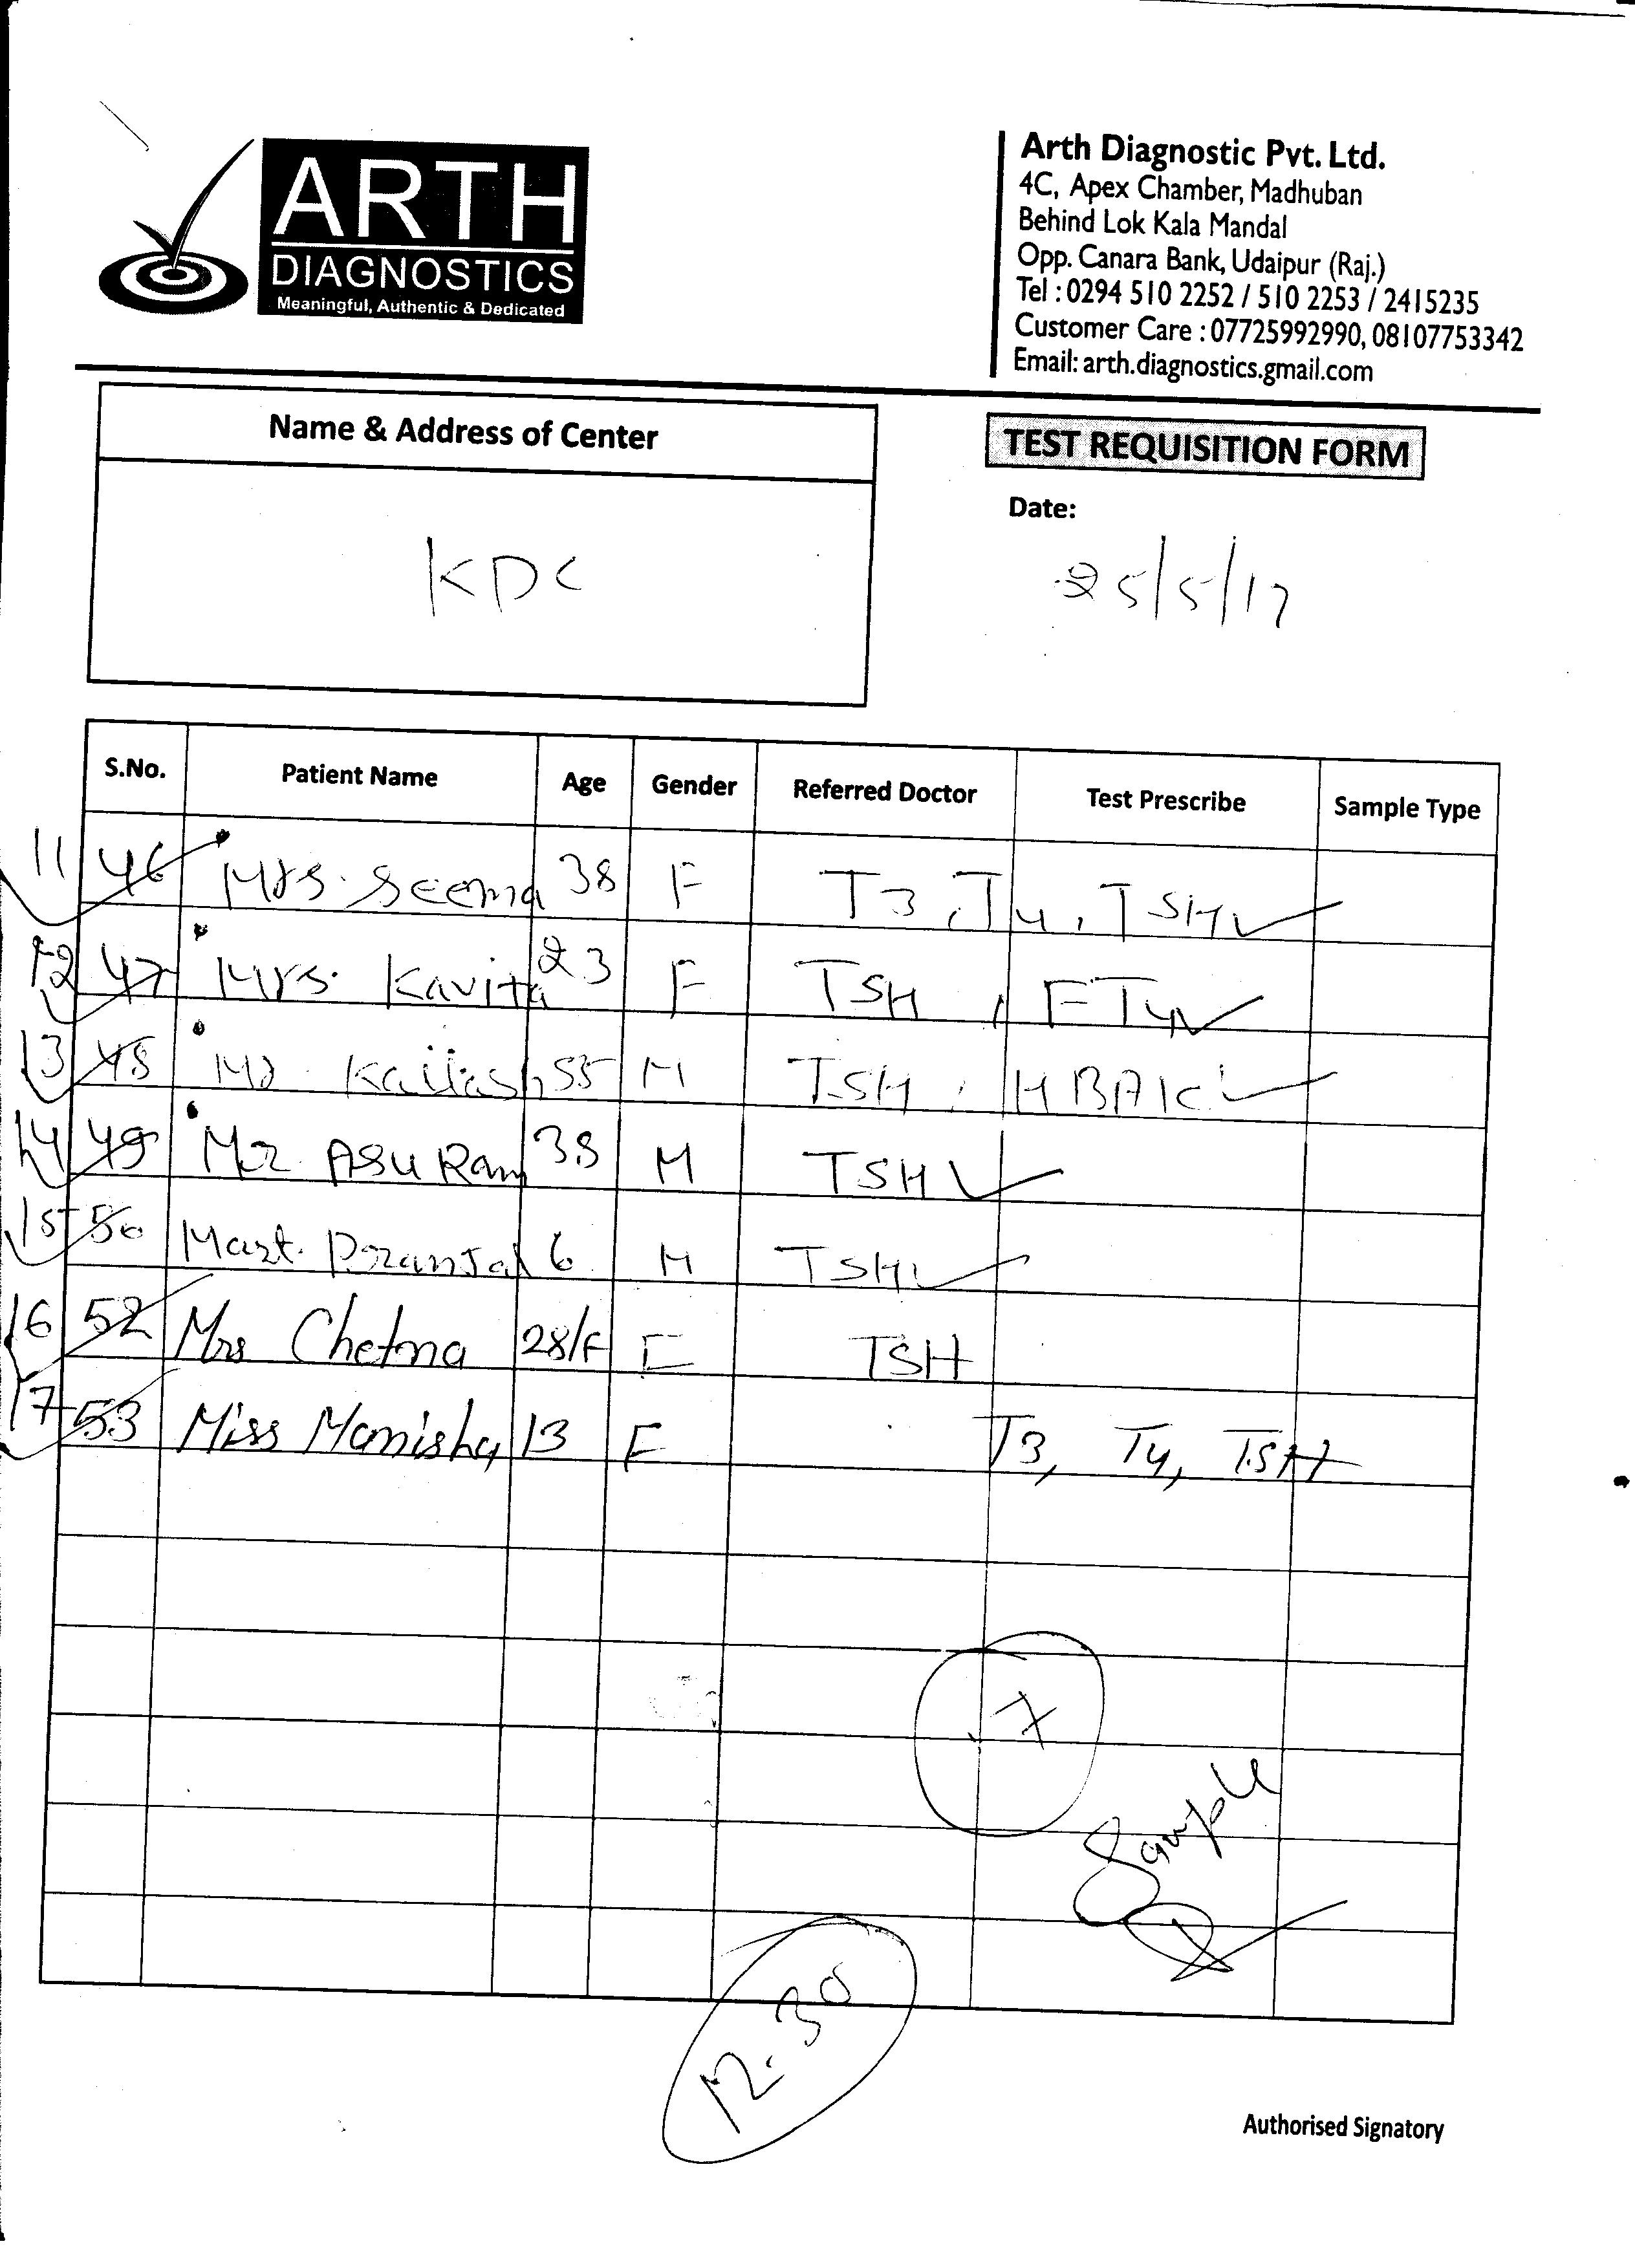 ARTH
DIAGNOSTICS
Meaningful, Authentic & Dedicated
Arth Diagnostic Pvt. Ltd.
4C, Apex Chamber, Madhuban
Behind Lok Kala Mandal
Opp. Canara Bank, Udaipur (Raj.)
Tel : 0294 510 2252 / 510 2253 / 2415235
Customer Care : 07725992990, 08107753342
Email: arth.diagnostics.gmail.com
Name & Address of Center
KDC
TEST REQUISITION FORM
Date:
25/5/17
S.No. Patient Name Age Gender Referred Doctor Test Prescribe Sample Type
11 46 Mrs. Seema 38 F T3, T4, TSH
12 47 Mrs. Kavita 23 F TSH, FT4
13 48 Mr. Kailash 55 M TSH, HBA1C
14 49 Mr. Asu Ram 38 M TSH
15 50 Mast. Pranjal 6 M TSH
16 52 Mrs Chetna 28/F F TSH
17 53 Miss Manisha 13 F T3, T4, TSH
7
Sample
12.30
Authorised Signatory